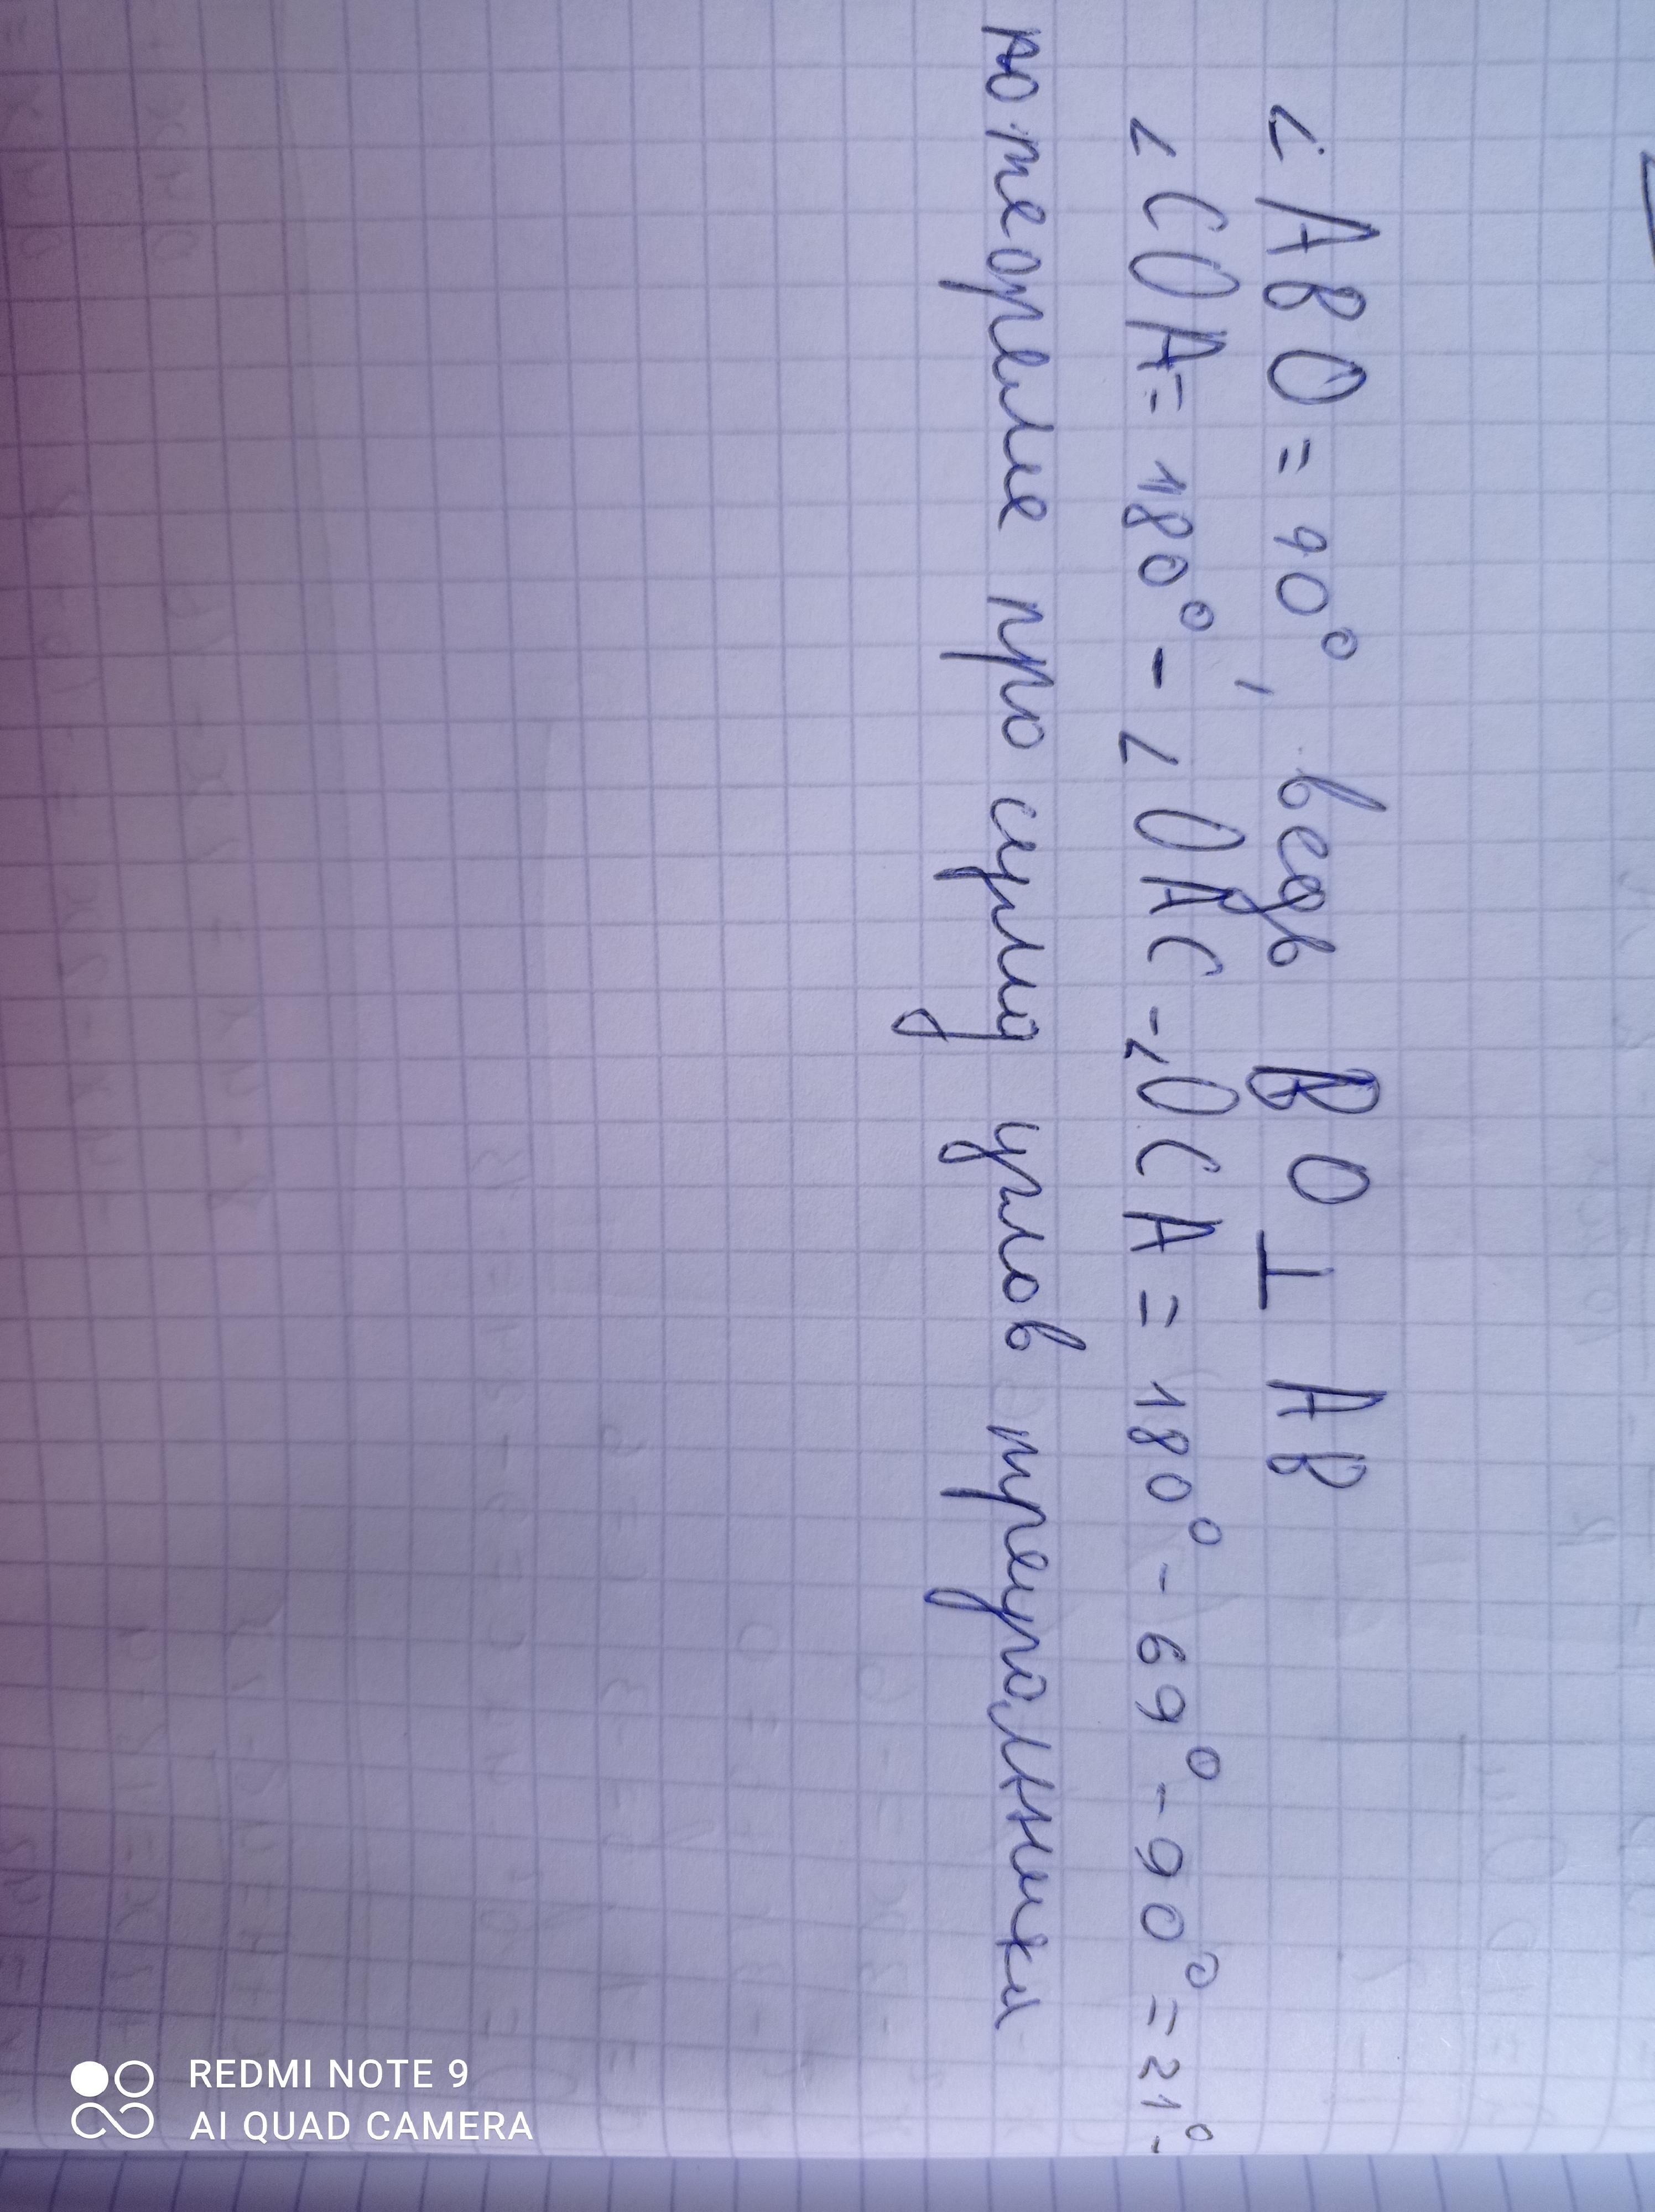 ∠ABO = 90°, ведь BO ⊥ AB
∠COA = 180° - ∠OAC - ∠OCA = 180° - 69° - 90° = 21° -
по теореме про сумму углов треугольника
REDMI NOTE 9
AI QUAD CAMERA